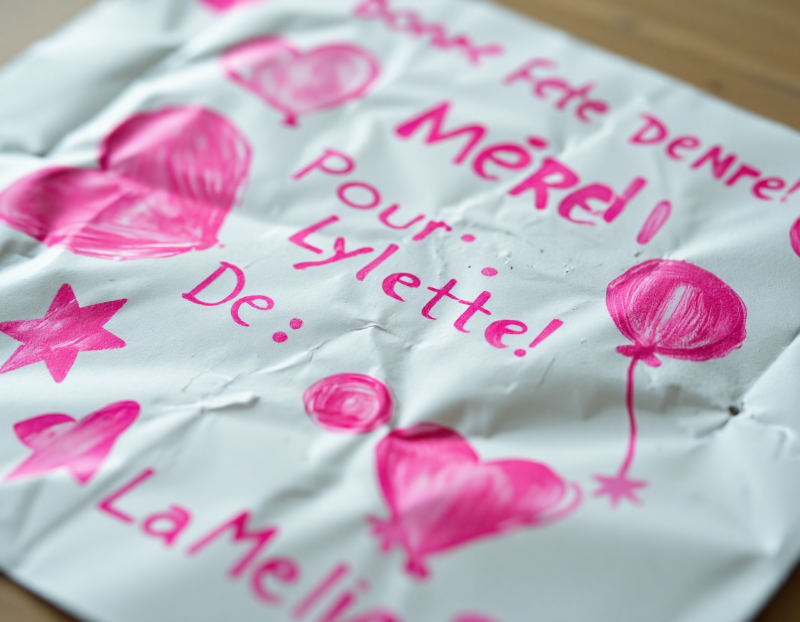 Bonne Fete Denre!
MéRe!!
Pour:
Lylette!
De:
LaMelie